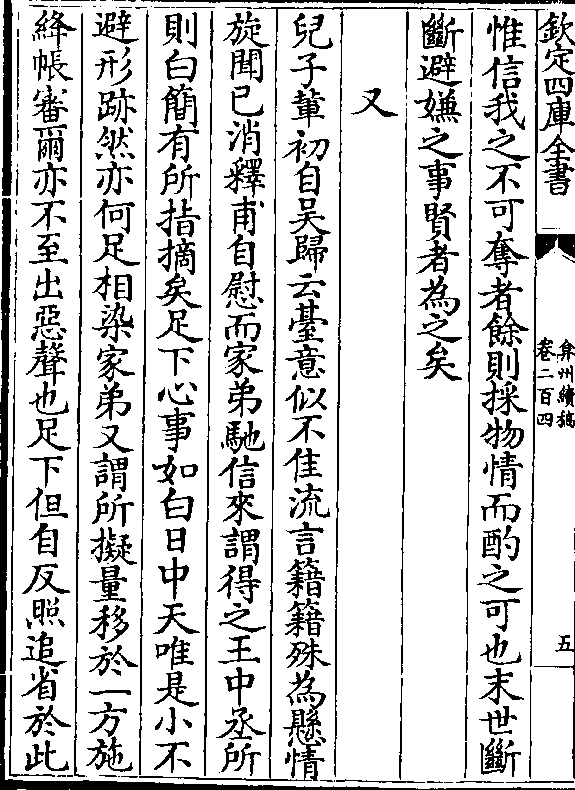 欽定四庫全書
弇州續稿
卷二百四
五
惟信我之不可奪者餘則採物情而酌之可也末世斷
斷避嫌之事賢者為之矣
又
兒子輩初自吳歸云臺意似不佳流言籍籍殊為懸情
旋聞已消釋甫自慰而家弟馳信來謂得之王中丞所
則白簡有所指摘矣足下心事如白日中天唯是小不
避形跡然亦何足相染家弟又謂所擬量移於一方施
絳帳審爾亦不至出惡聲也足下但自反照追省於此